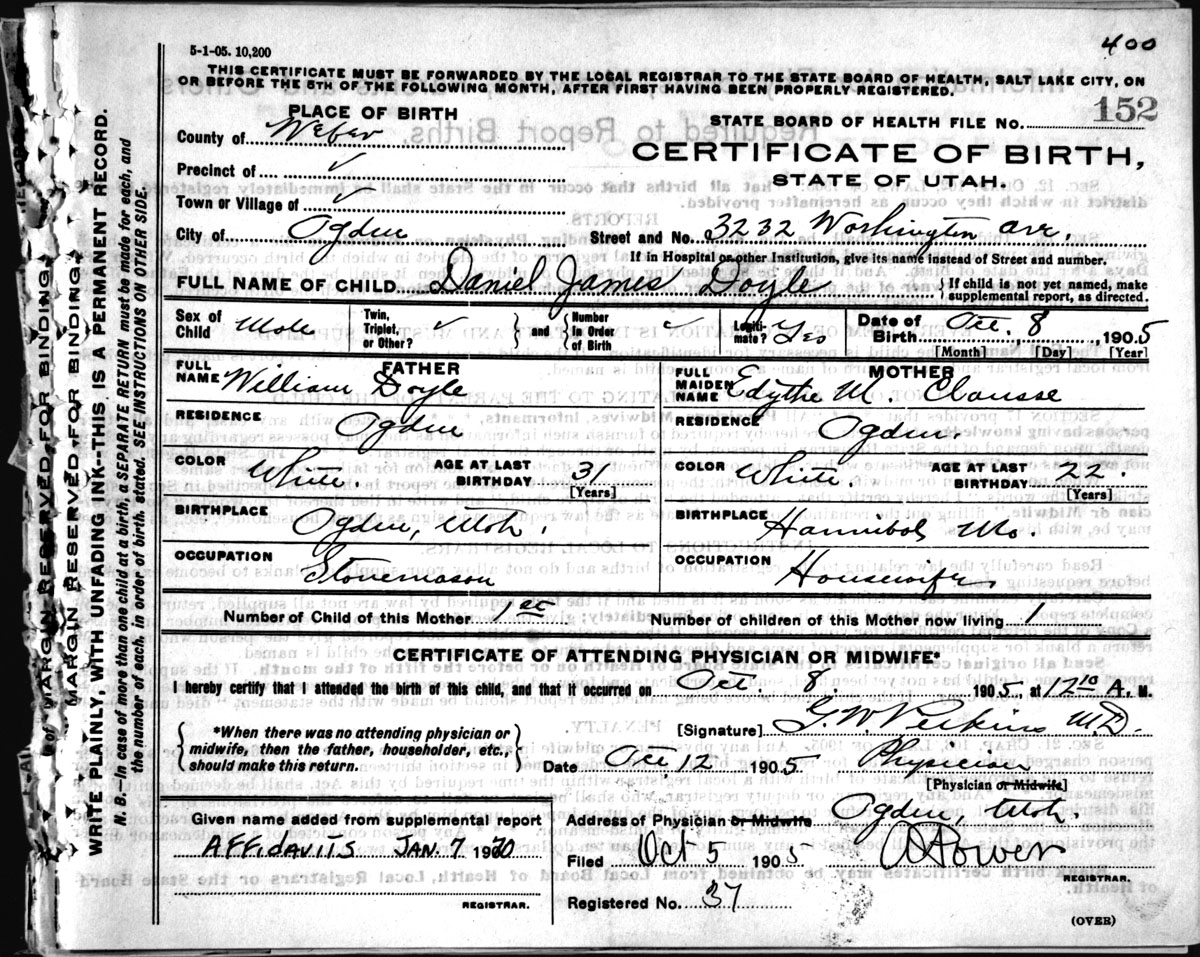 5-1-05. 10,200
400
THIS CERTIFICATE MUST BE FORWARDED BY THE LOCAL REGISTRAR TO THE STATE BOARD OF HEALTH, SALT LAKE CITY, ON
OR BEFORE THE 5TH OF THE FOLLOWING MONTH, AFTER FIRST HAVING BEEN PROPERLY REGISTERED.
PLACE OF BIRTH
County of Weber
Precinct of ✓
Town or Village of ✓
City of Ogden
STATE BOARD OF HEALTH FILE NO. 152
CERTIFICATE OF BIRTH,
STATE OF UTAH.
Street and No. 3232 Washington Ave.
If in Hospital or other Institution, give its name instead of Street and number.
FULL NAME OF CHILD Daniel James Doyle
{ If child is not yet named, make
supplemental report, as directed.
Sex of Child Male
Twin, Triplet, or Other? ✓ } and { Number In Order of Birth ✓
Legiti-mate? Yes
Date of Birth Oct. 8, 1905
[Month] [Day] [Year]
FATHER
FULL NAME William Doyle
RESIDENCE Ogden
COLOR White. AGE AT LAST BIRTHDAY 31
[Years]
BIRTHPLACE Ogden, Utah.
OCCUPATION Stonemason
MOTHER
FULL MAIDEN NAME Edythe M. Clausse
RESIDENCE Ogden.
COLOR White. AGE AT LAST BIRTHDAY 22.
[Years]
BIRTHPLACE Hannibal Mo.
OCCUPATION Housewife
Number of Child of this Mother 1st Number of children of this Mother now living 1
CERTIFICATE OF ATTENDING PHYSICIAN OR MIDWIFE*
I hereby certify that I attended the birth of this child, and that it occurred on Oct. 8. 1905, at 12 10 A. M.
{ *When there was no attending physician or
midwife, then the father, householder, etc.,
should make this return. }
[Signature] G. W. Perkins M.D.
Date Oct 12 1905 Physician
[Physician or Midwife]
Given name added from supplemental report
AFFIDAVITS JAN. 7 1970
REGISTRAR.
Address of Physician or Midwife Ogden, Utah.
Filed Oct 5 1905
REGISTRAR.
Registered No. 37
(OVER)
MARGIN RESERVED FOR BINDING
MARGIN RESERVED FOR BINDING.
WRITE PLAINLY, WITH UNFADING INK--THIS IS A PERMANENT RECORD.
N. B.--In case of more than one child at a birth, a SEPARATE RETURN must be made for each, and
the number of each, in order of birth, stated. SEE INSTRUCTIONS ON OTHER SIDE.